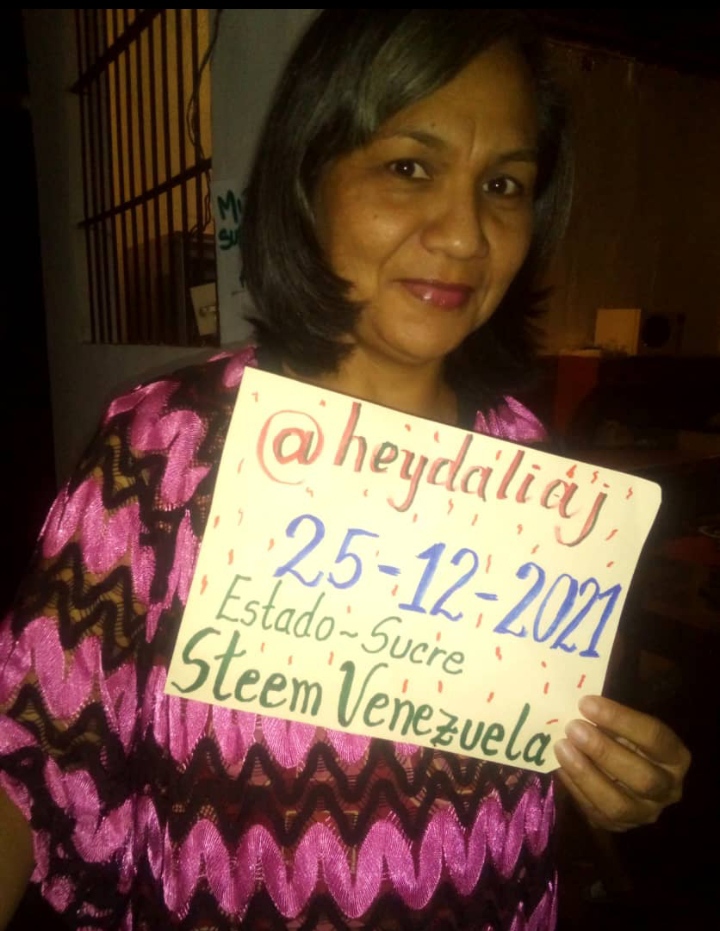 @heydaliaj
25-12-2021
Estado~Sucre
Steem Venezuela